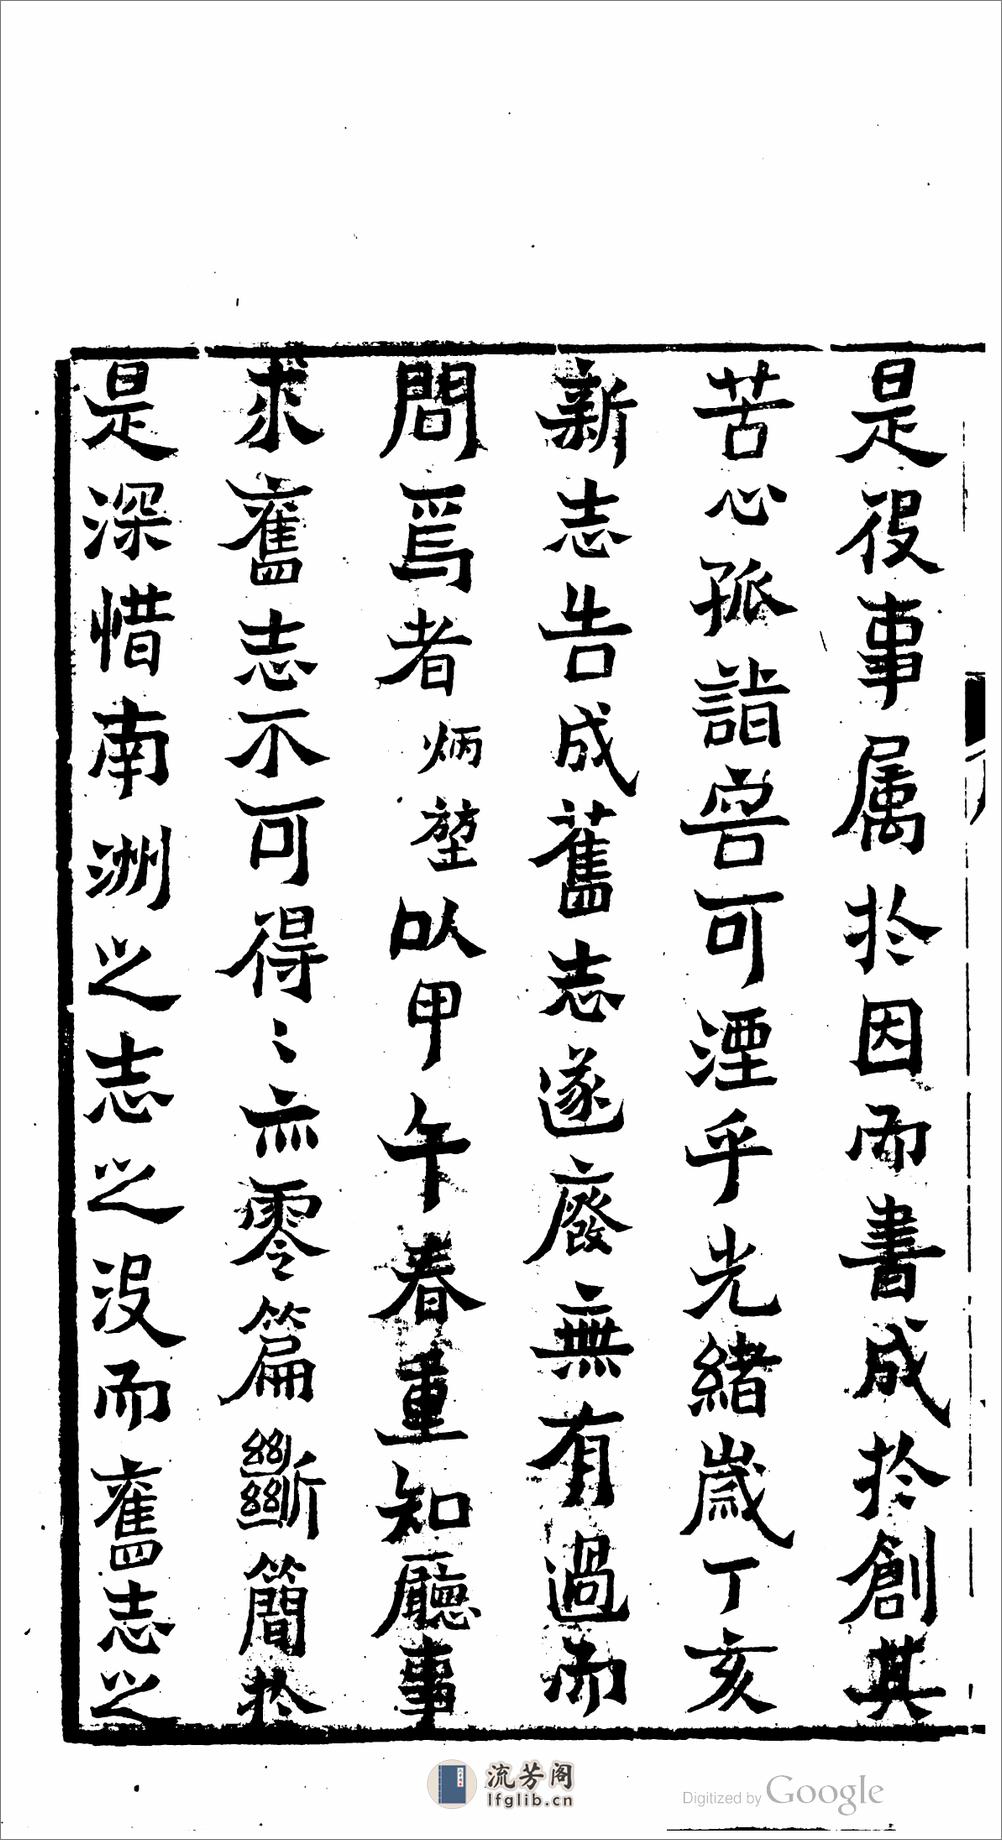 是役事属於因而書成於創其
苦心孤詣詎可湮乎光緒歲丁亥
新志告成舊志遂廢無有過而
問焉者炳堃以甲午春重知廳事
求舊志不可得〻亦零篇斷簡於
是深惜南洲之志之没而舊志之
流芳阁
lfglib.cn
Digitized by Google